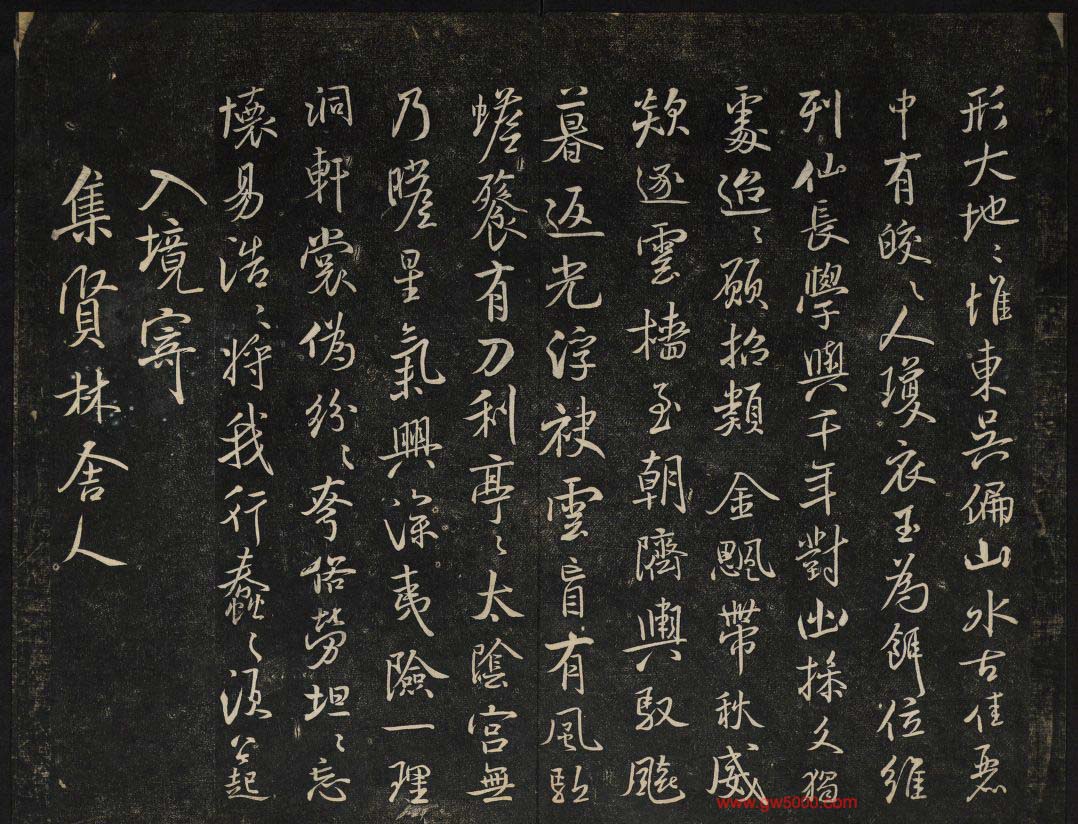 形大地〻惟東吳偏山水古佳麗
中有皎〻人瓊衣玉為餌位維
列仙長學與千年對幽操久獨
處迢〻願招類 金颸帶秋威
欻逐雲檣至朝隮輿馭飈
暮返光浮袂雲盲有風驅
蟾餮有刀利亭〻太陰宮無
乃瞻星氣興深夷險一理
洞軒裳偽紛〻夸俗勞坦〻忘
懷易浩〻將我行蠢〻須公起
入境寄
集賢林舍人
www.gw5000.com